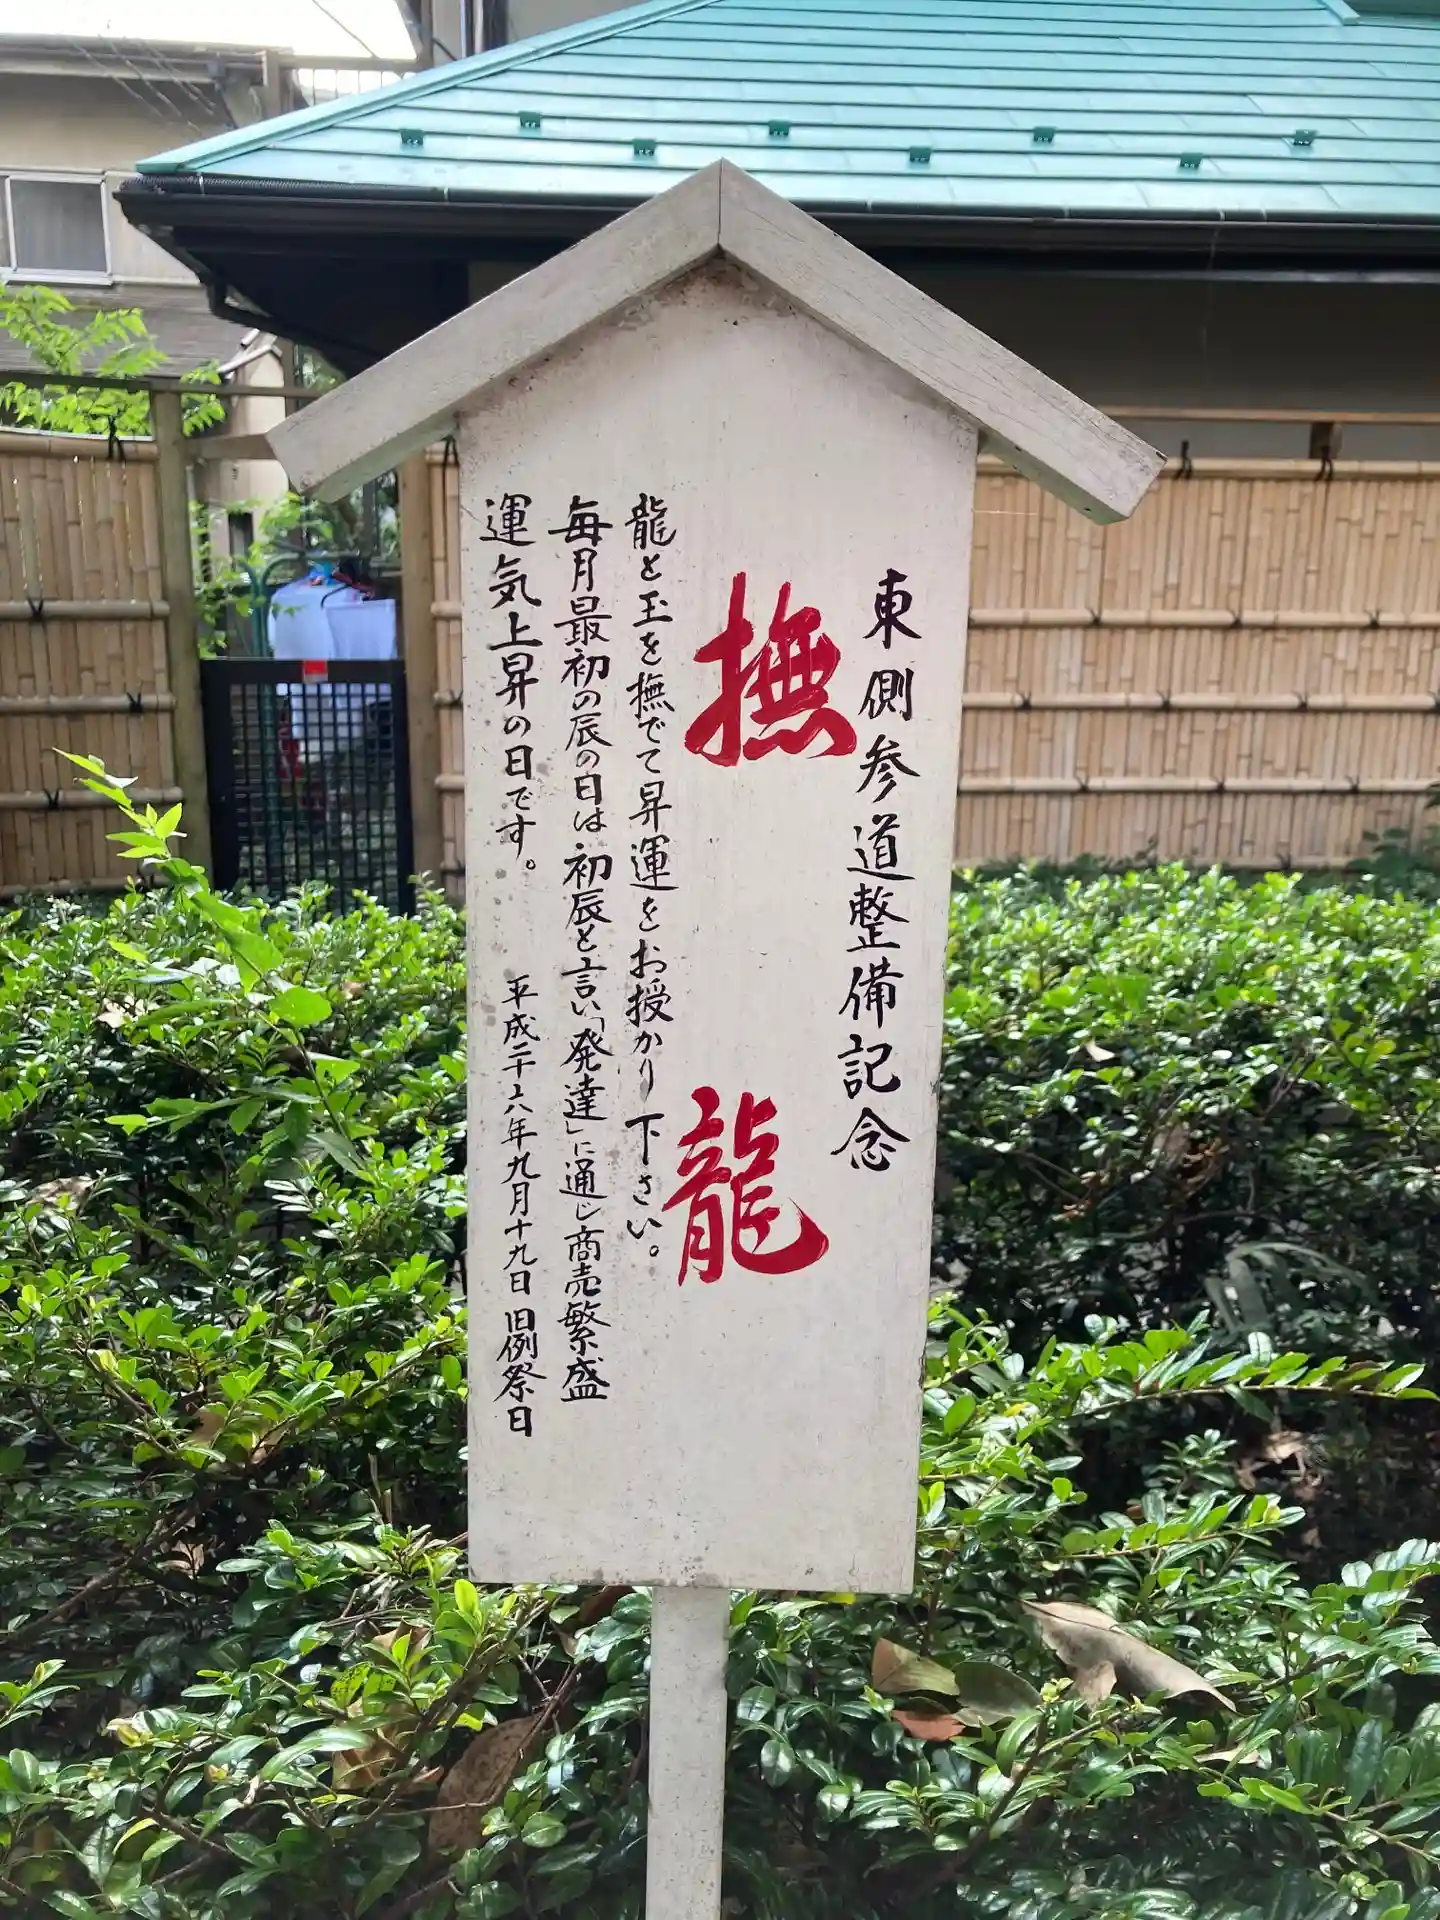 東側参道整備記念
撫龍
龍と玉を撫でて昇運をお授かり下さい。
毎月最初の辰の日は初辰と言い「発達」に通じ商売繁盛
運気上昇の日です。
平成二十六年九月十九日 旧例祭日